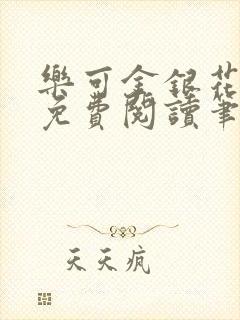 樂可金銀花
免費閱讀筆
天天疯